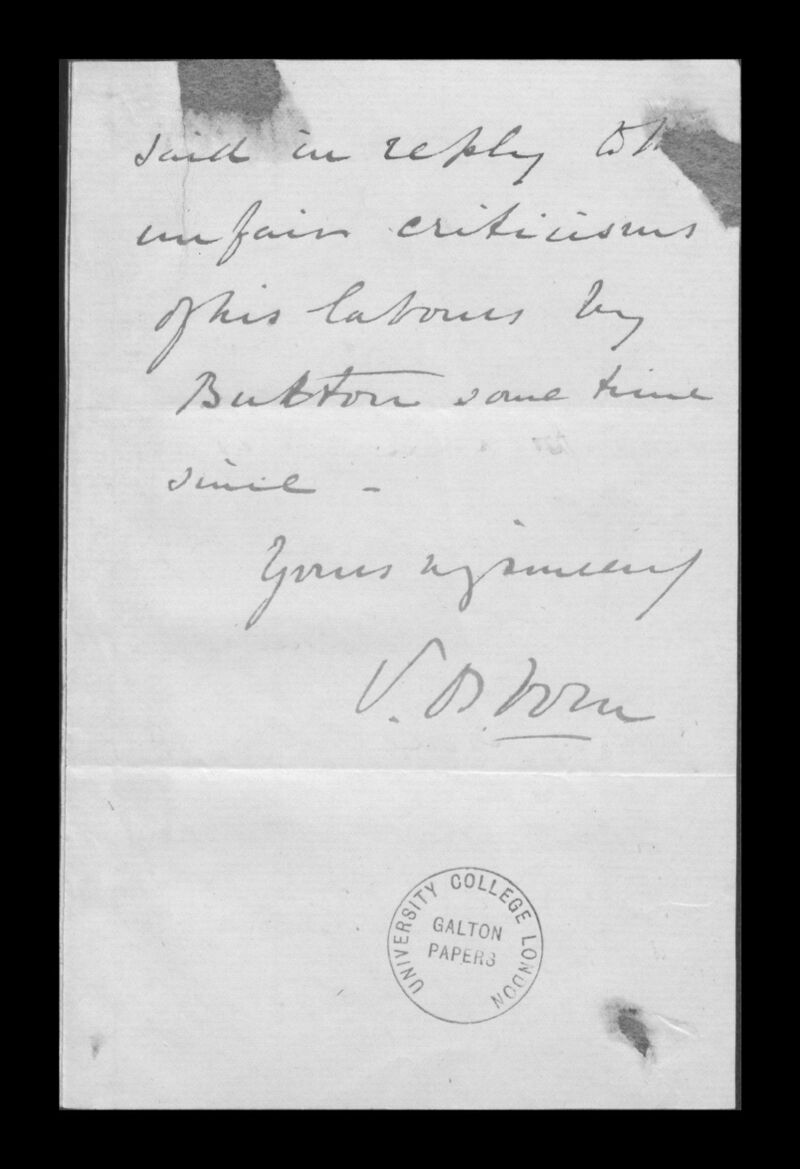 said in reply to
unfair criticisms
of his labours by
Burton some time
since -
Yours very sincerely
V.
UNIVERSITY COLLEGE LONDON
GALTON
PAPERS